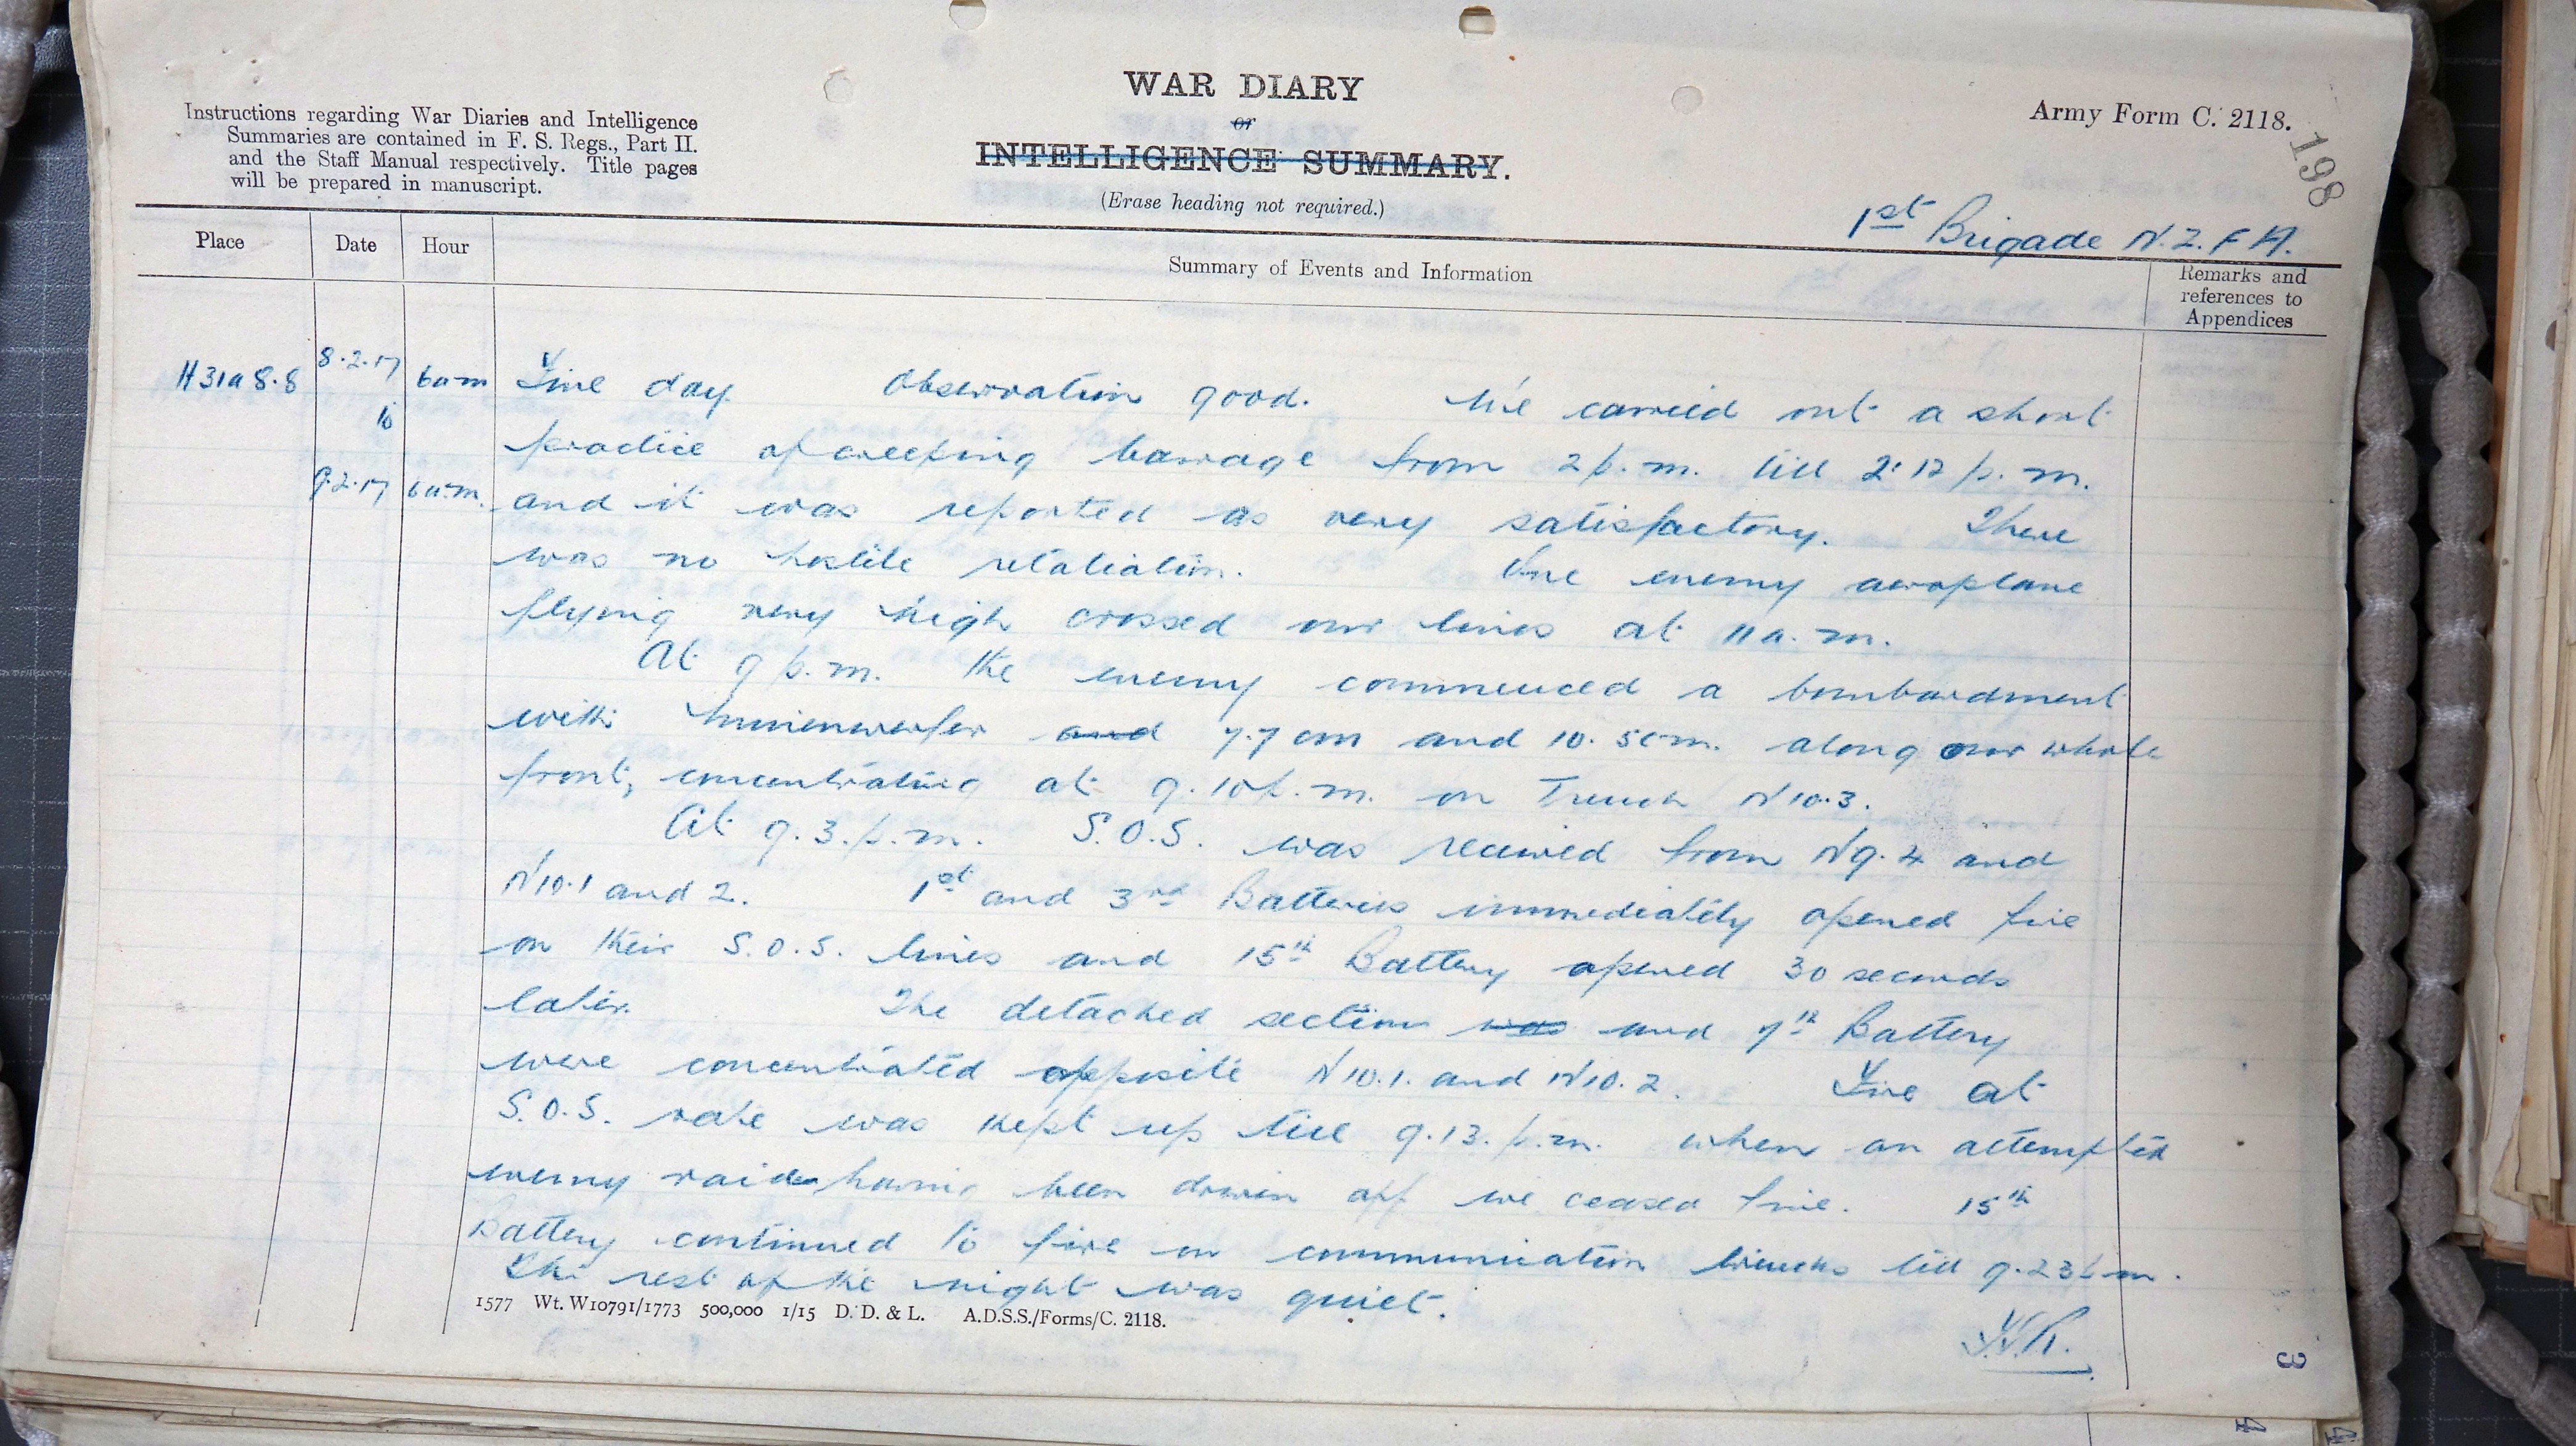 WAR DIARY
or
INTELLIGENCE SUMMARY.
(Erase heading not required.)
Instructions regarding War Diaries and Intelligence
Summaries are contained in F. S. Regs., Part II.
and the Staff Manual respectively. Title pages
will be prepared in manuscript.
Army Form C. 2118.
198
1st Brigade N.Z.F.A.
Place
Date
Hour
Summary of Events and Information
Remarks and
references to
Appendices
H31a 8.8
8.2.17
6am
to
9.2.17
6a.m.
Fine day. Observation good. We carried out a short
practice of creeping barrage from 2 p.m. till 2.12 p.m.
and it was reported as very satisfactory. There
was no hostile retaliation. One enemy aeroplane
flying very high crossed our lines at 11 a.m.
At 9 p.m. the enemy commenced a bombardment
with minenwerfer and 7.7cm and 10.5cm. along our whole
front, concentrating at 9.10 p.m. on Trench N10.3.
At 9.3.p.m. S.O.S. was received from N9.4 and
N10.1 and 2. 1st and 3rd Batteries immediately opened fire
on their S.O.S. lines and 15th Battery opened 30 seconds
later. The detached section was and 7th Battery
were concentrated opposite N10.1. and N10.2. Fire at
S.O.S. rate was kept up till 9.13.p.m. when an attempted
enemy raid having been driven off we ceased fire. 15th
Battery continued to fire on communication trenches till 9.23 p.m.
The rest of the night was quiet.
1577 Wt. W10791/1773 500,000 1/15 D. D. & L. A.D.S.S./Forms/C. 2118.
3